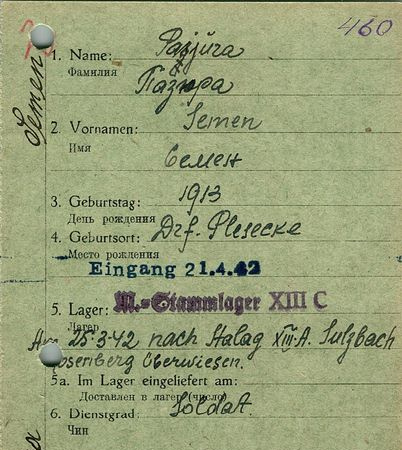 460
Semen
1. Name: Pazjura
Фамилия
Пазюра
2. Vornamen: Semen
Имя
Семен
3. Geburtstag: 1913
День рождения
4. Geburtsort: Drf. Plesecke
Место рождения
Eingang 21.4.42
5. Lager: M.-Stammlager XIII C
Лагерь
Am 25.3.42 nach Stalag XIII A. Sulzbach
Rosenberg überwiesen.
5a. Im Lager eingeliefert am:
Доставлен в лагерь (число)
6. Dienstgrad: Soldat.
Чин